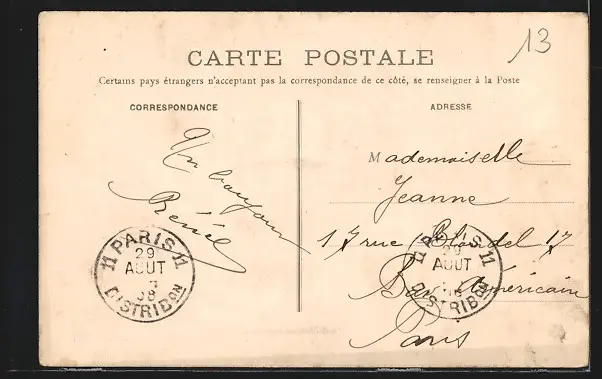 13
CARTE POSTALE
Certains pays étrangers n'acceptant pas la correspondance de ce côté, se renseigner à la Poste
CORRESPONDANCE
ADRESSE
Un bonjour
Mademoiselle
Jeanne
17 rue Blondel 17
Bar Américain
Paris
PARIS
11 11
29
AOUT
08
DISTRIBON
PARIS
11
29
AOUT
DISTRIBON